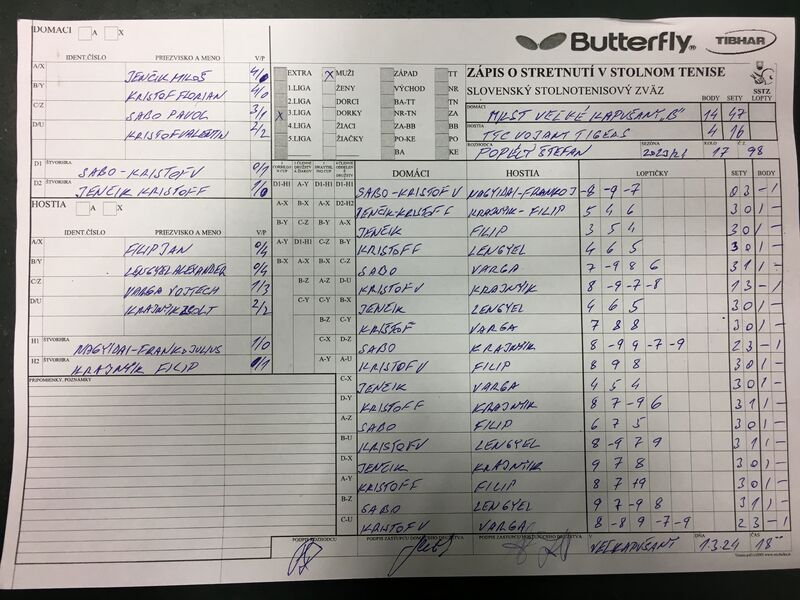 DOMÁCI A X
IDENT.ČÍSLO PRIEZVISKO A MENO V/P
A/X JENČIK MILOŠ 4/0
B/Y KRISTOF FLORIAN 4/0
C/Z SABO PAVOL 3/1
D/U KRISTOF VALENTIN 2/2
D1 ŠTVORHRA SABO-KRISTOF V 0/1
D2 ŠTVORHRA JENČIK KRISTOFF 1/0
HOSTIA A X
IDENT.ČÍSLO PRIEZVISKO A MENO V/P
A/X FILIP JAN 0/4
B/Y LENGYEL ALEXANDER 0/4
C/Z VARGA VOJTECH 1/3
D/U KRAJNYIK ZSOLT 2/2
H1 ŠTVORHRA NAGYIDAI-FRANKO JULIUS 1/0
H2 ŠTVORHRA KRAJNYIK FILIP 0/1
PRIPOMIENKY, POZNÁMKY
Butterfly TIBHAR
EXTRA X MUŽI ZÁPAD TT
1.LIGA ŽENY VÝCHOD NR
2.LIGA DORCI BA-TT TN
X 3.LIGA DORKY NR-TN ZA
4.LIGA ŽIACI ZA-BB BB
5.LIGA ŽIAČKY PO-KE PO
BA KE
ZÁPIS O STRETNUTÍ V STOLNOM TENISE
SLOVENSKÝ STOLNOTENISOVÝ ZVÄZ
SSTZ
BODY SETY LOPTY
DOMÁCI MKST VEĽKÉ KAPUŠANY „B" 14 47
HOSTIA TTC VOJANY TIGERS 4 16
ROZHODCA POPÉLY ŠTEFAN SEZÓNA KOLO 17 Č 98
DOMÁCI HOSTIA LOPTIČKY SETY BODY
SABO-KRISTOF V NAGYIDAI-FRANKO J -8 -9 -7 0 3 - 1
JENČIK-KRISTOFF KRAJNYIK-FILIP 5 4 6 3 0 1 -
JENČIK FILIP 3 5 4 3 0 1 -
KRISTOFF LENGYEL 4 6 5 3 0 1 -
SABO VARGA 7 -9 8 6 3 1 1 -
KRISTOFV KRAJNYIK 8 -9 -7 -8 1 3 - 1
JENČIK LENGYEL 4 6 5 3 0 1 -
KRISTOF VARGA 7 8 8 3 0 1 -
SABO KRAJNYIK 8 -9 9 -7 -9 2 3 - 1
KRISTOFV FILIP 8 9 8 3 0 1 -
C-X JENČIK VARGA 4 5 4 3 0 1 -
D-Y KRISTOFF KRAJNYIK 8 7 -9 6 3 1 1 -
A-Z SABO FILIP 6 7 5 3 0 1 -
B-U KRISTOFV LENGYEL 8 -9 7 9 3 1 1 -
D-X JENČIK KRAJNYIK 9 7 8 3 0 1 -
KRISTOFF FILIP 8 7 19 3 0 1 -
B-Z SABO LENGYEL 9 7 -9 8 3 1 1 -
C-U KRISTOFV VARGA 8 -8 9 -7 -9 2 3 - 1
PODPIS ROZHODCU PODPIS ZÁSTUPCU DOMÁCEHO DRUŽSTVA PODPIS ZÁSTUPCU HOSŤUJÚCEHO DRUŽSTVA V DŇA 1.3.24 ČAS 18